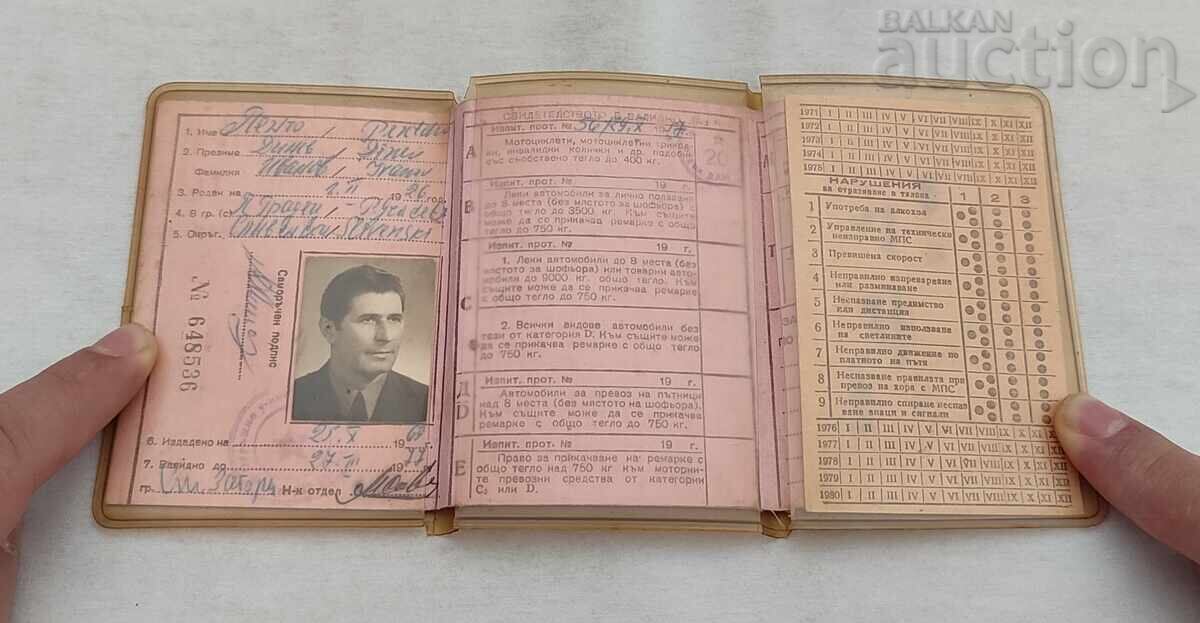 BALKAN
auction
1. Име Пенто /
2. Презиме Димъ / Dimev
Фамилия Иванов / Ivanov
3. Роден на 1. II 1926 год.
4. В гр. (с)
5. Окръг. Сливенски / Slivenski
№ 648536
Саморъчен подпис
6. Издадено на 25. X 19
7. Валидно до 27. III 19
гр. Ст. Загора Н-к отдел
СВИДЕТЕЛСТВОТО Е ВАЛИДНО
А
Изпит. прот. № 19 г.
Мотоциклети, мотоциклетни
инвалидни колички и др. подобни
със собствено тегло до 400 кг.
20
B
Изпит. прот. № 19 г.
Леки автомобили за лично ползване
до 8 места (без мястото за шофьора) с
общо тегло до 3500 кг. Към същите
може да се прикачва ремарке с общо
тегло до 750 кг.
C
Изпит. прот. № 19 г.
1. Леки автомобили до 8 места (без
мястото за шофьора) или товарни авто-
мобили до 9000 кг. общо тегло. Към
същите може да се прикачва ремарке
с общо тегло до 750 кг.
2. Всички видове автомобили без
тези от категория D. Към същите може
да се прикачва ремарке с общо тегло
до 750 кг.
Д
D
Изпит. прот. № 19 г.
Автомобили за превоз на пътници
над 8 места (без мястото на шофьора).
Към същите може да се прикачва
ремарке с общо тегло до 750 кг.
E
Изпит. прот. № 19 г.
Право за прикачване на ремарке с
общо тегло над 750 кг. Към моторни-
те превозни средства от категории
C₂ или D.
1971 I II III IV V VI VII VIII IX X XI XII
1972 I II III IV V VI VII VIII IX X XI XII
1973 I II III IV V VI VII VIII IX X XI XII
1974 I II III IV V VI VII VIII IX X XI XII
1975 I II III IV V VI VII VIII IX X XI XII
НАРУШЕНИЯ
за отразяване в талона 1 2 3
1 Употреба на алкохол
2 Управление на технически
неизправно МПС
3 Превишена скорост
4 Неправилно изпреварване
или разминаване
5 Неспазване предимство
или дистанция
6 Неправилно използване
на светлините
7 Неправилно движение по
платното на пътя
8 Неспазване правилата при
превоз на хора с МПС
9 Неправилно спиране неспаз-
ване знаци и сигнали
1976 I II III IV V VI VII VIII IX X XI XII
1977 I II III IV V VI VII VIII IX X XI XII
1978 I II III IV V VI VII VIII IX X XI XII
1979 I II III IV V VI VII VIII IX X XI XII
1980 I II III IV V VI VII VIII IX X XI XII